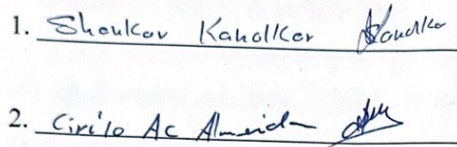 1. Shenkov Kandlkar
2. Cirilo Ac Almeida